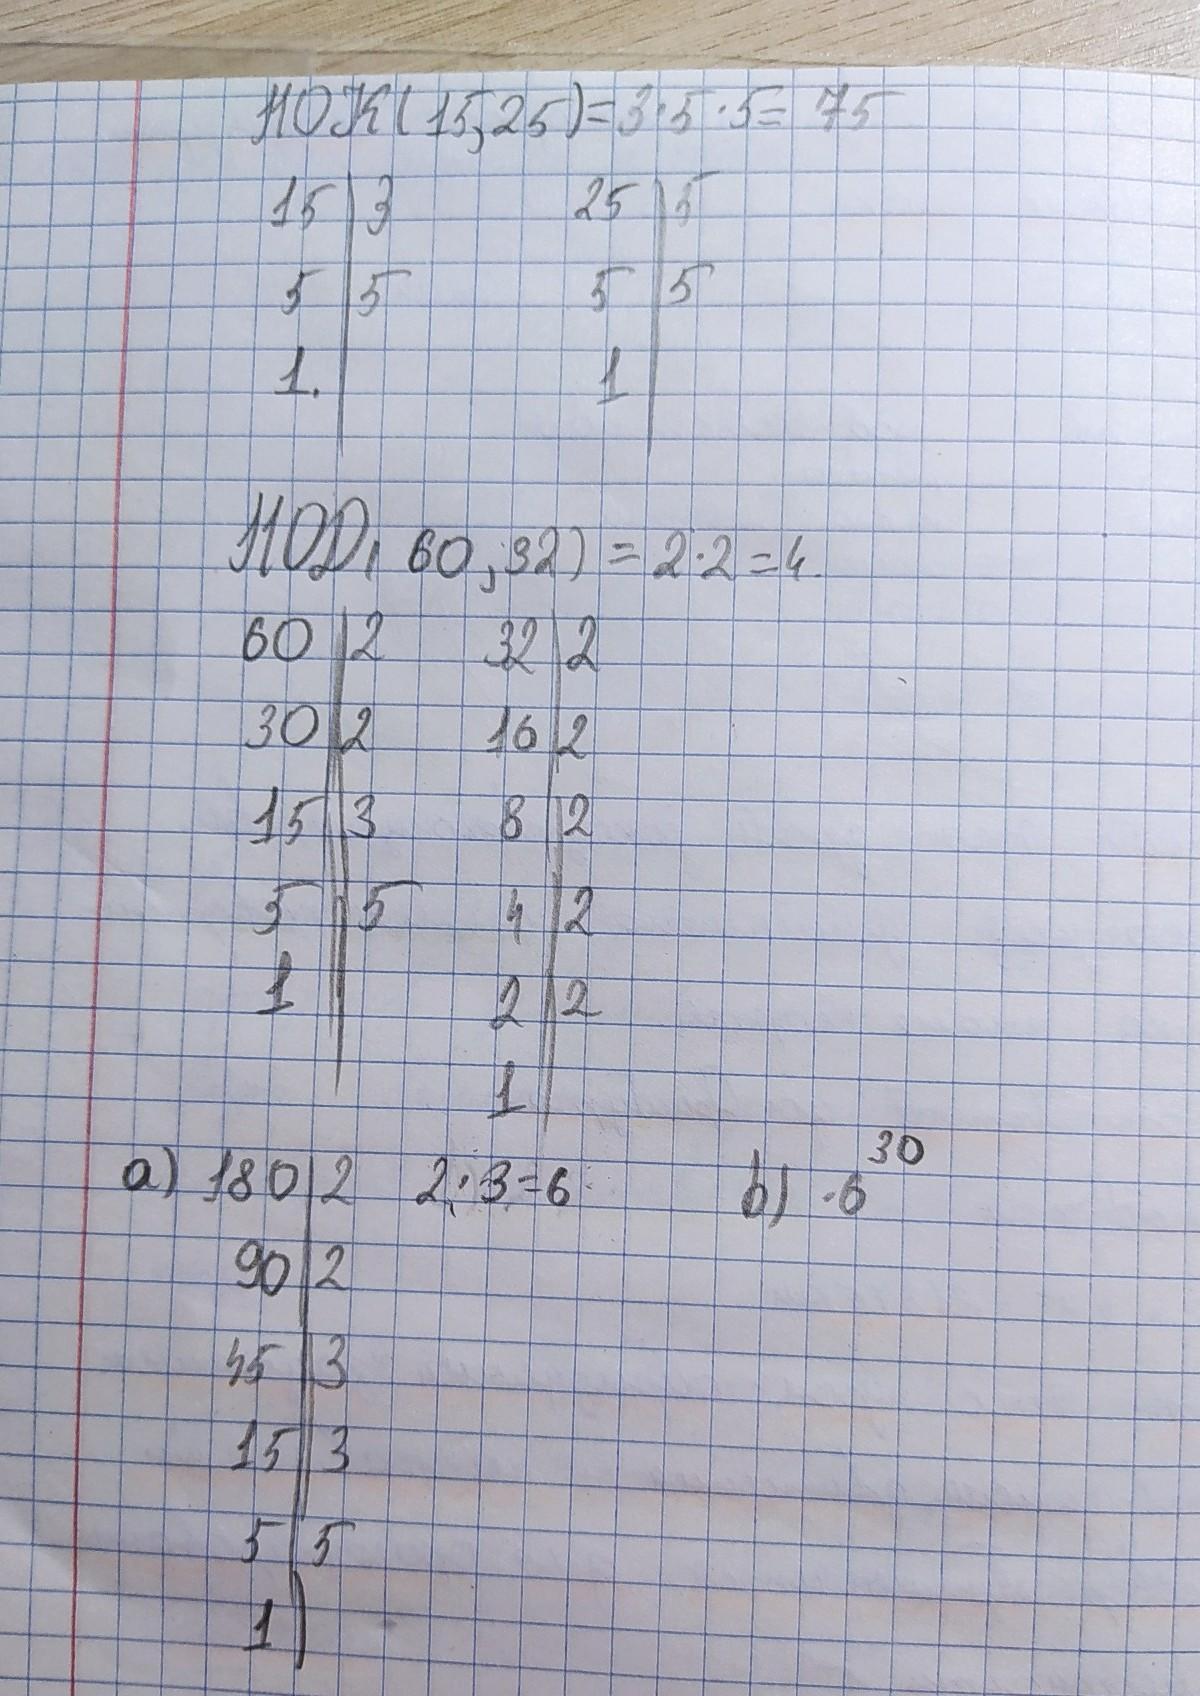 НОК(15,25)=3·5·5=75
15|3 25|5
5|5 5|5
1. 1
НОД( 60;32)=2·2=4.
60|2 32|2
30|2 16|2
15|3 8|2
5|5 4|2
1 2|2
1
a) 180|2 2·3=6 b) ·6³⁰
90|2
45|3
15|3
5|5
1